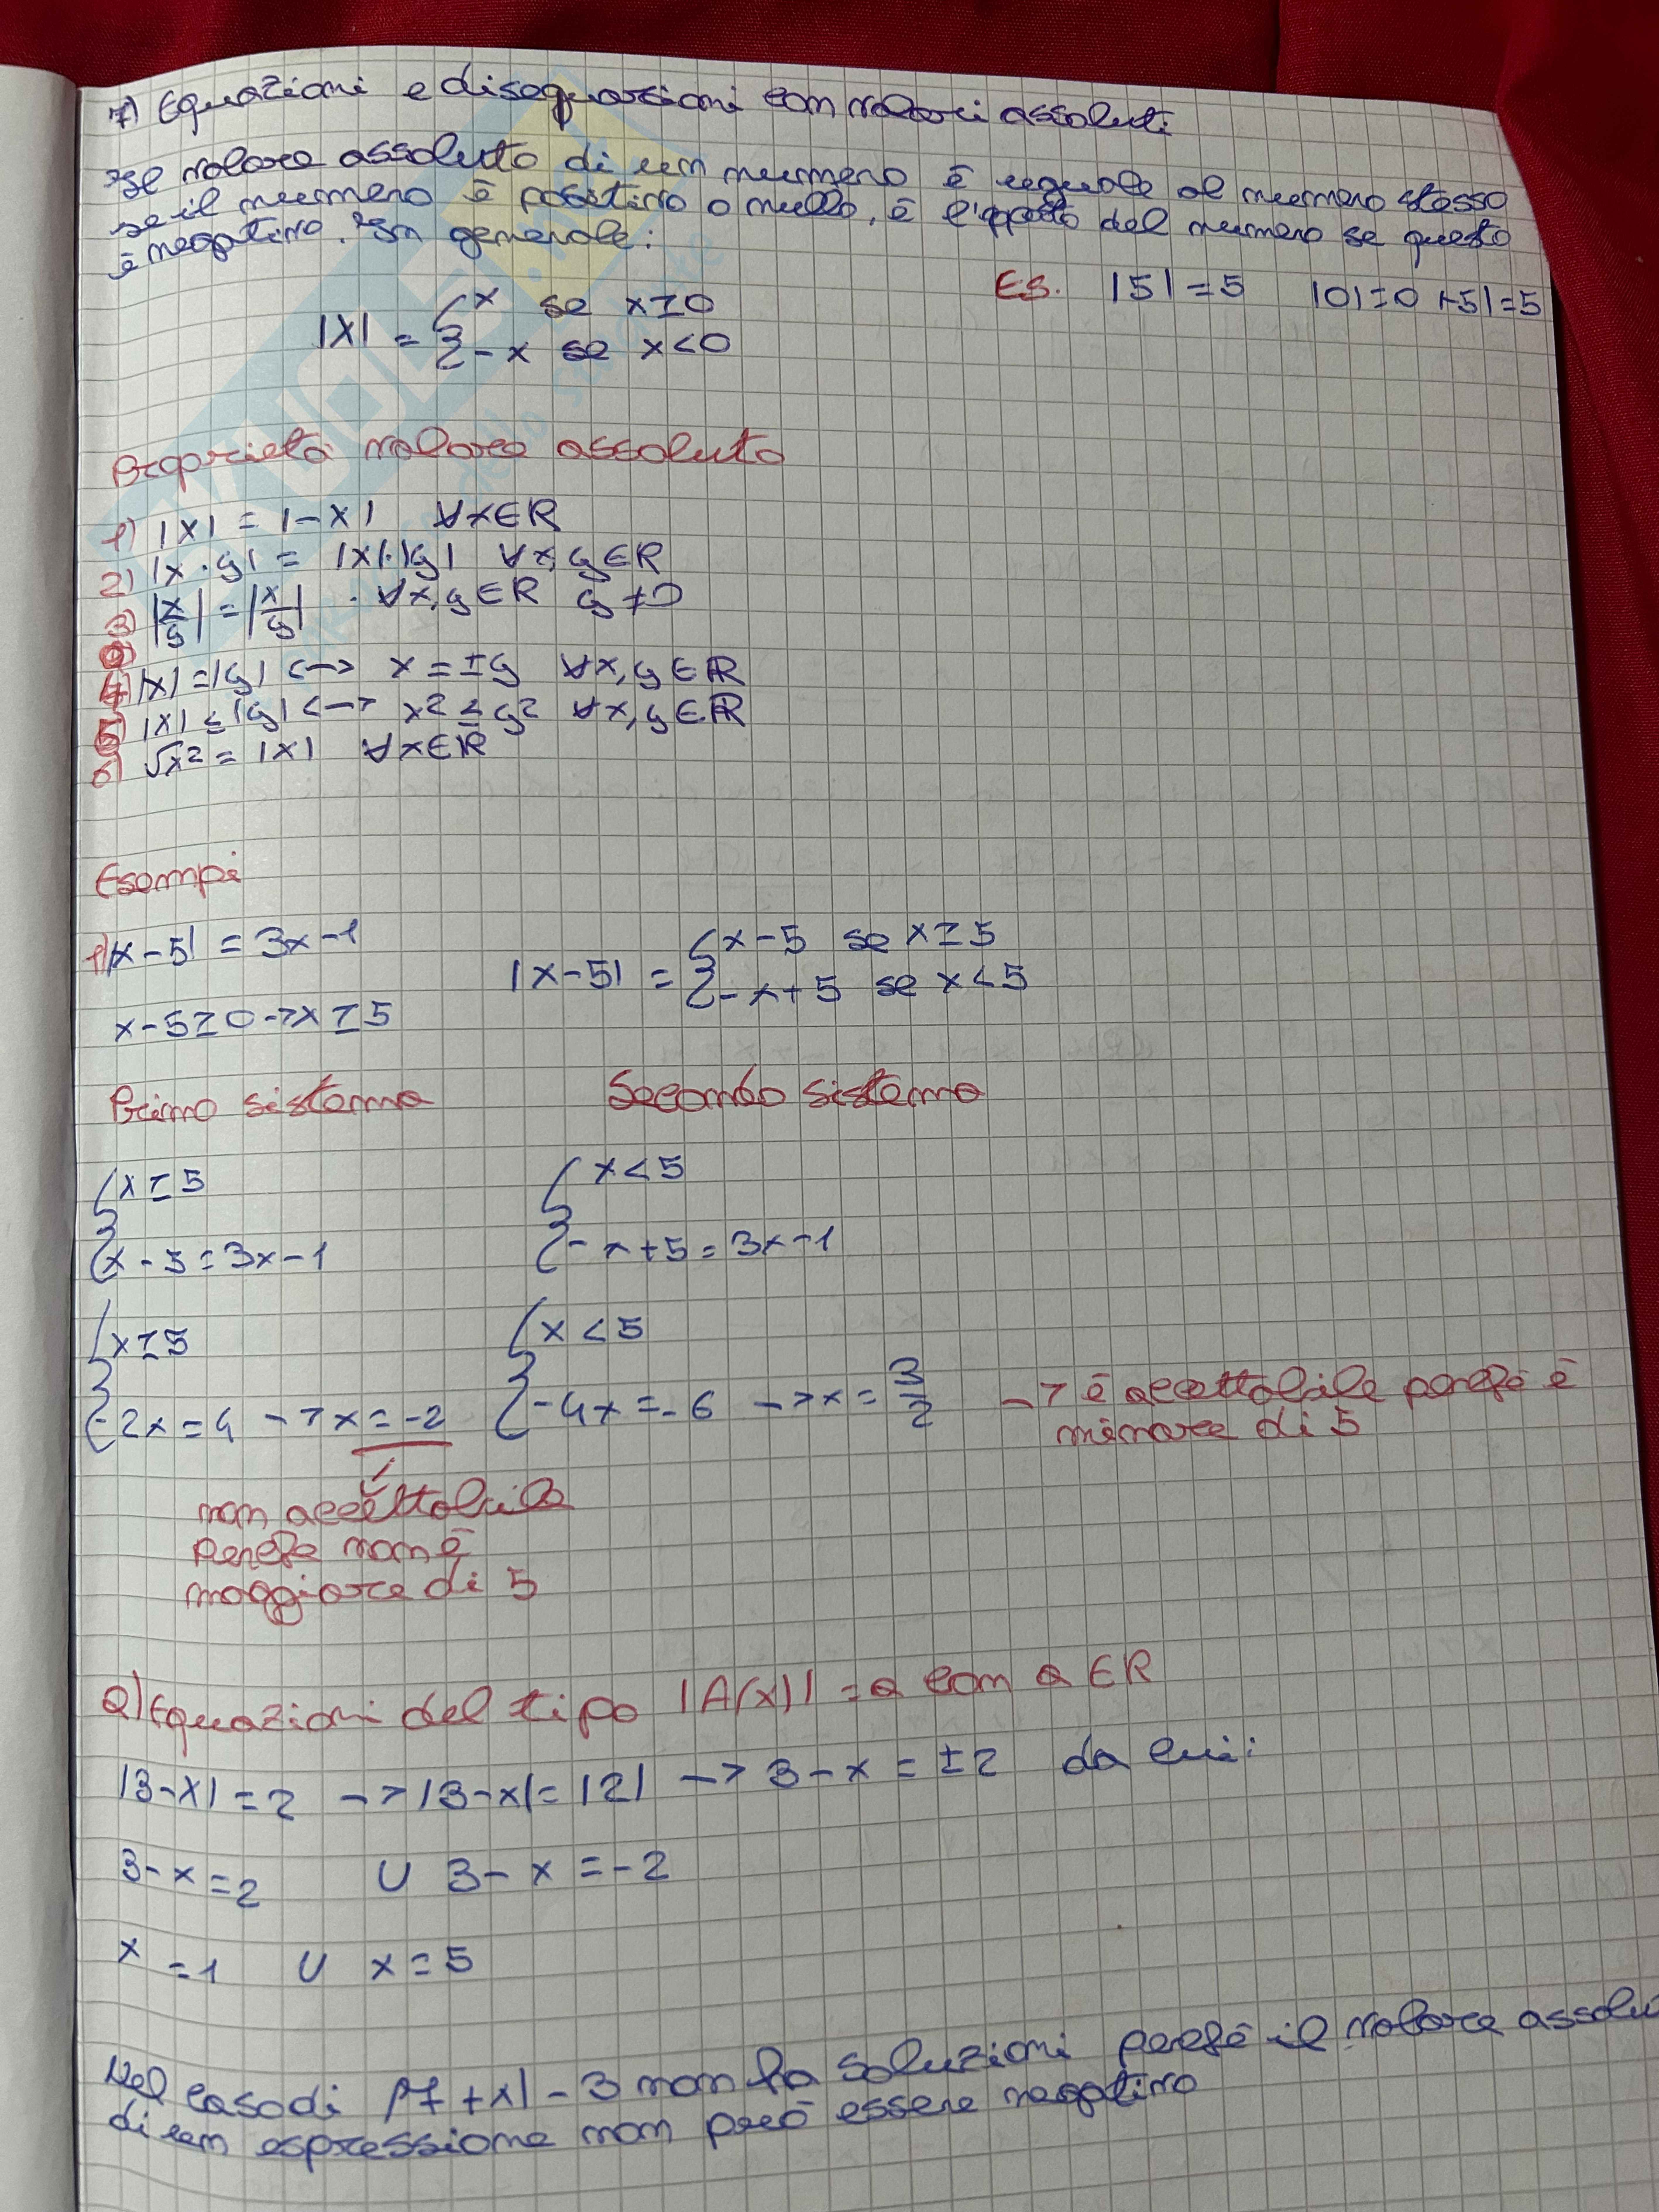 7) Equazioni e disequazioni con valori assoluti
Il valore assoluto di un numero è uguale al numero stesso
se il numero è positivo o nullo, è l'opposto del numero se questo
è negativo. In generale:
ES. |5|=5 |0|=0 |-5|=5
|X| = { x se x≥0
-x se x<0
Proprietà valore assoluto
1) |X| = |-X| ∀x∈R
2) |x·y| = |x|·|y| ∀x,y∈R
3) |x/y| = |x/y| . ∀x,y∈R y≠0
4) |x|=|y| <-> x=±y ∀x,y∈R
5) |x|≤|y| <-> x²≤y² ∀x,y∈R
6) √x² = |x| ∀x∈R
Esempi
1) |x-5| = 3x-1
|x-5| = { x-5 se x≥5
-x+5 se x<5
x-5≥0->x≥5
Primo sistema Secondo sistema
{ x≥5 { x<5
x-5=3x-1 -x+5=3x-1
{ x≥5 { x<5
-2x=4 -> x=-2 -4x=-6 -> x=3/2 -> è accettabile perché è
minore di 5
non accettabile
perché non è
maggiore di 5
2) Equazioni del tipo |A(x)|=a con a∈R
|3-x|=2 -> |3-x|=|2| -> 3-x=±2 da cui:
3-x=2 U 3-x=-2
x=1 U x=5
Nel caso di |7+x|-3 non ha soluzioni perché il valore assolu
di un espressione non può essere negativo